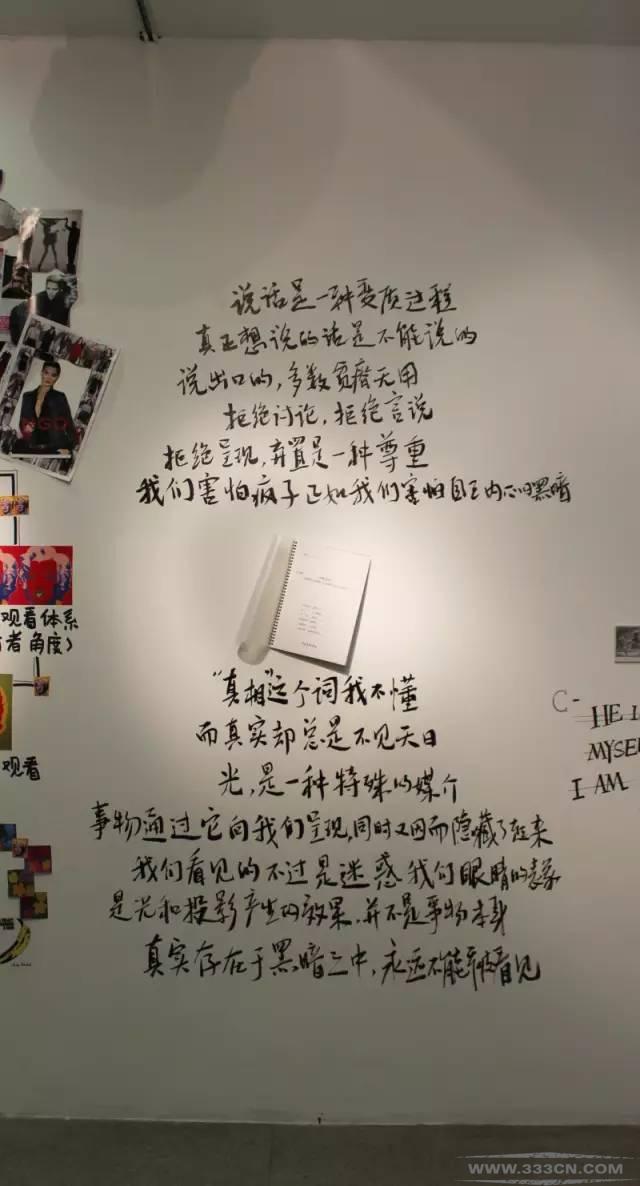 说话是一种变质过程
真正想说的话是不能说的
说出口的，多数贫瘠无用
拒绝讨论，拒绝言说
拒绝呈现，弃置是一种尊重
我们害怕疯子正如我们害怕自己内心的黑暗
"真相"这个词我不懂
而真实却总是不见天日
光，是一种特殊的媒介
事物通过它向我们呈现，同时又因而隐藏了起来
我们看见的不过是迷惑我们眼睛的表象
是光和投影产生的效果，并不是事物本身
真实存在于黑暗之中，永远不能被看见
观看体系
者角度）
观看
C-
HE I
MYSEL
I AM
WWW.333CN.COM